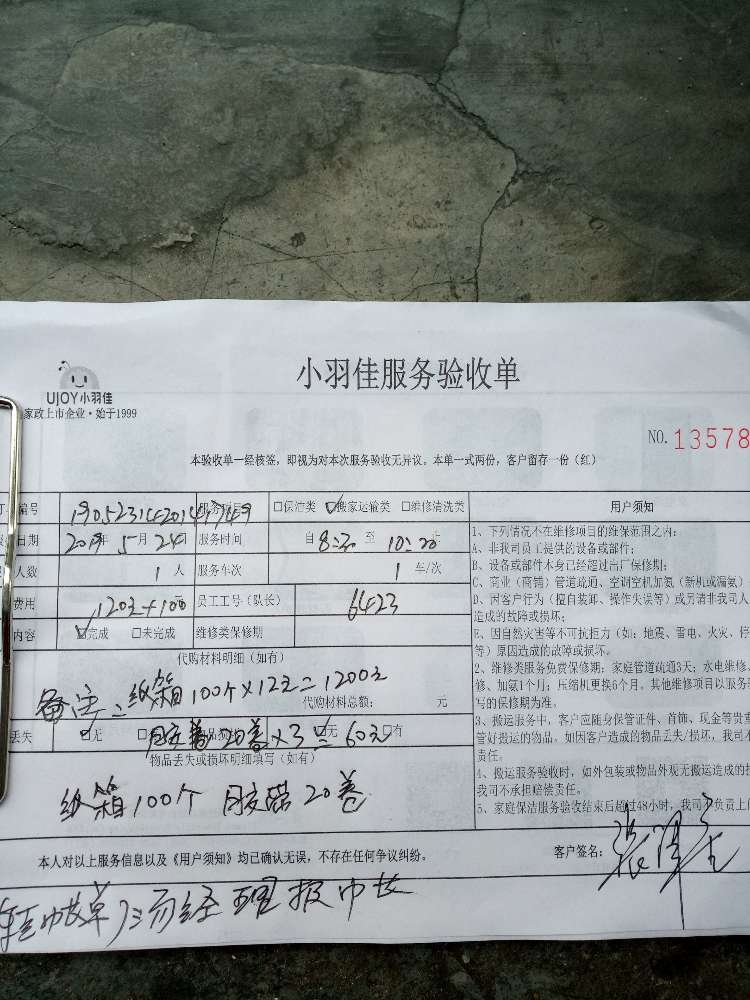 小羽佳服务验收单
UJOY小羽佳
家政上市企业·始于1999
NO. 13578
本验收单一经核签，即视为对本次服务验收无异议。本单一式两份，客户留存一份（红）
编号 □保洁类 ☑搬家运输类 □维修清洗类
日期 2019年 5月24日 服务时间 自 8:30 至 10:20
人数 1 人 服务车次 1 车/次
费用 员工工号(队长) 6423
内容 ☑完成 □未完成 维修类保修期
代购材料明细（如有）
纸箱100个×12元=1200元
代购材料总额： 元
丢失 □无 ☑无 □有
×3=60元
物品丢失或损坏明细填写（如有）
纸箱100个 胶带20卷
本人对以上服务信息以及《用户须知》均已确认无误，不存在任何争议纠纷。
客户签名：
用户须知
1、下列情况不在维修项目的维保范围之内：
A、非我司员工提供的设备或部件；
B、设备或部件本身已经超过出厂保修期；
C、商业（商铺）管道疏通、空调空机加氨（新机或漏氨）
D、因客户行为（擅自装卸、操作失误等）或另请非我司人
造成的故障或损坏；
E、因自然灾害等不可抗拒力（如：地震、雷电、火灾、停
等）原因造成的故障或损坏。
2、维修类服务免费保修期：家庭管道疏通3天；水电维修、
修、加氨1个月；压缩机更换6个月。其他维修项目以服务
写的保修期为准。
3、搬运服务中，客户应随身保管证件、首饰、现金等贵重
管好搬运的物品。如因客户造成的物品丢失/损坏，我司不
责任。
4、搬运服务验收时，如外包装或物品外观无搬运造成的
我司不承担赔偿责任。
5、家庭保洁服务验收结束后超过48小时，我司不负责上